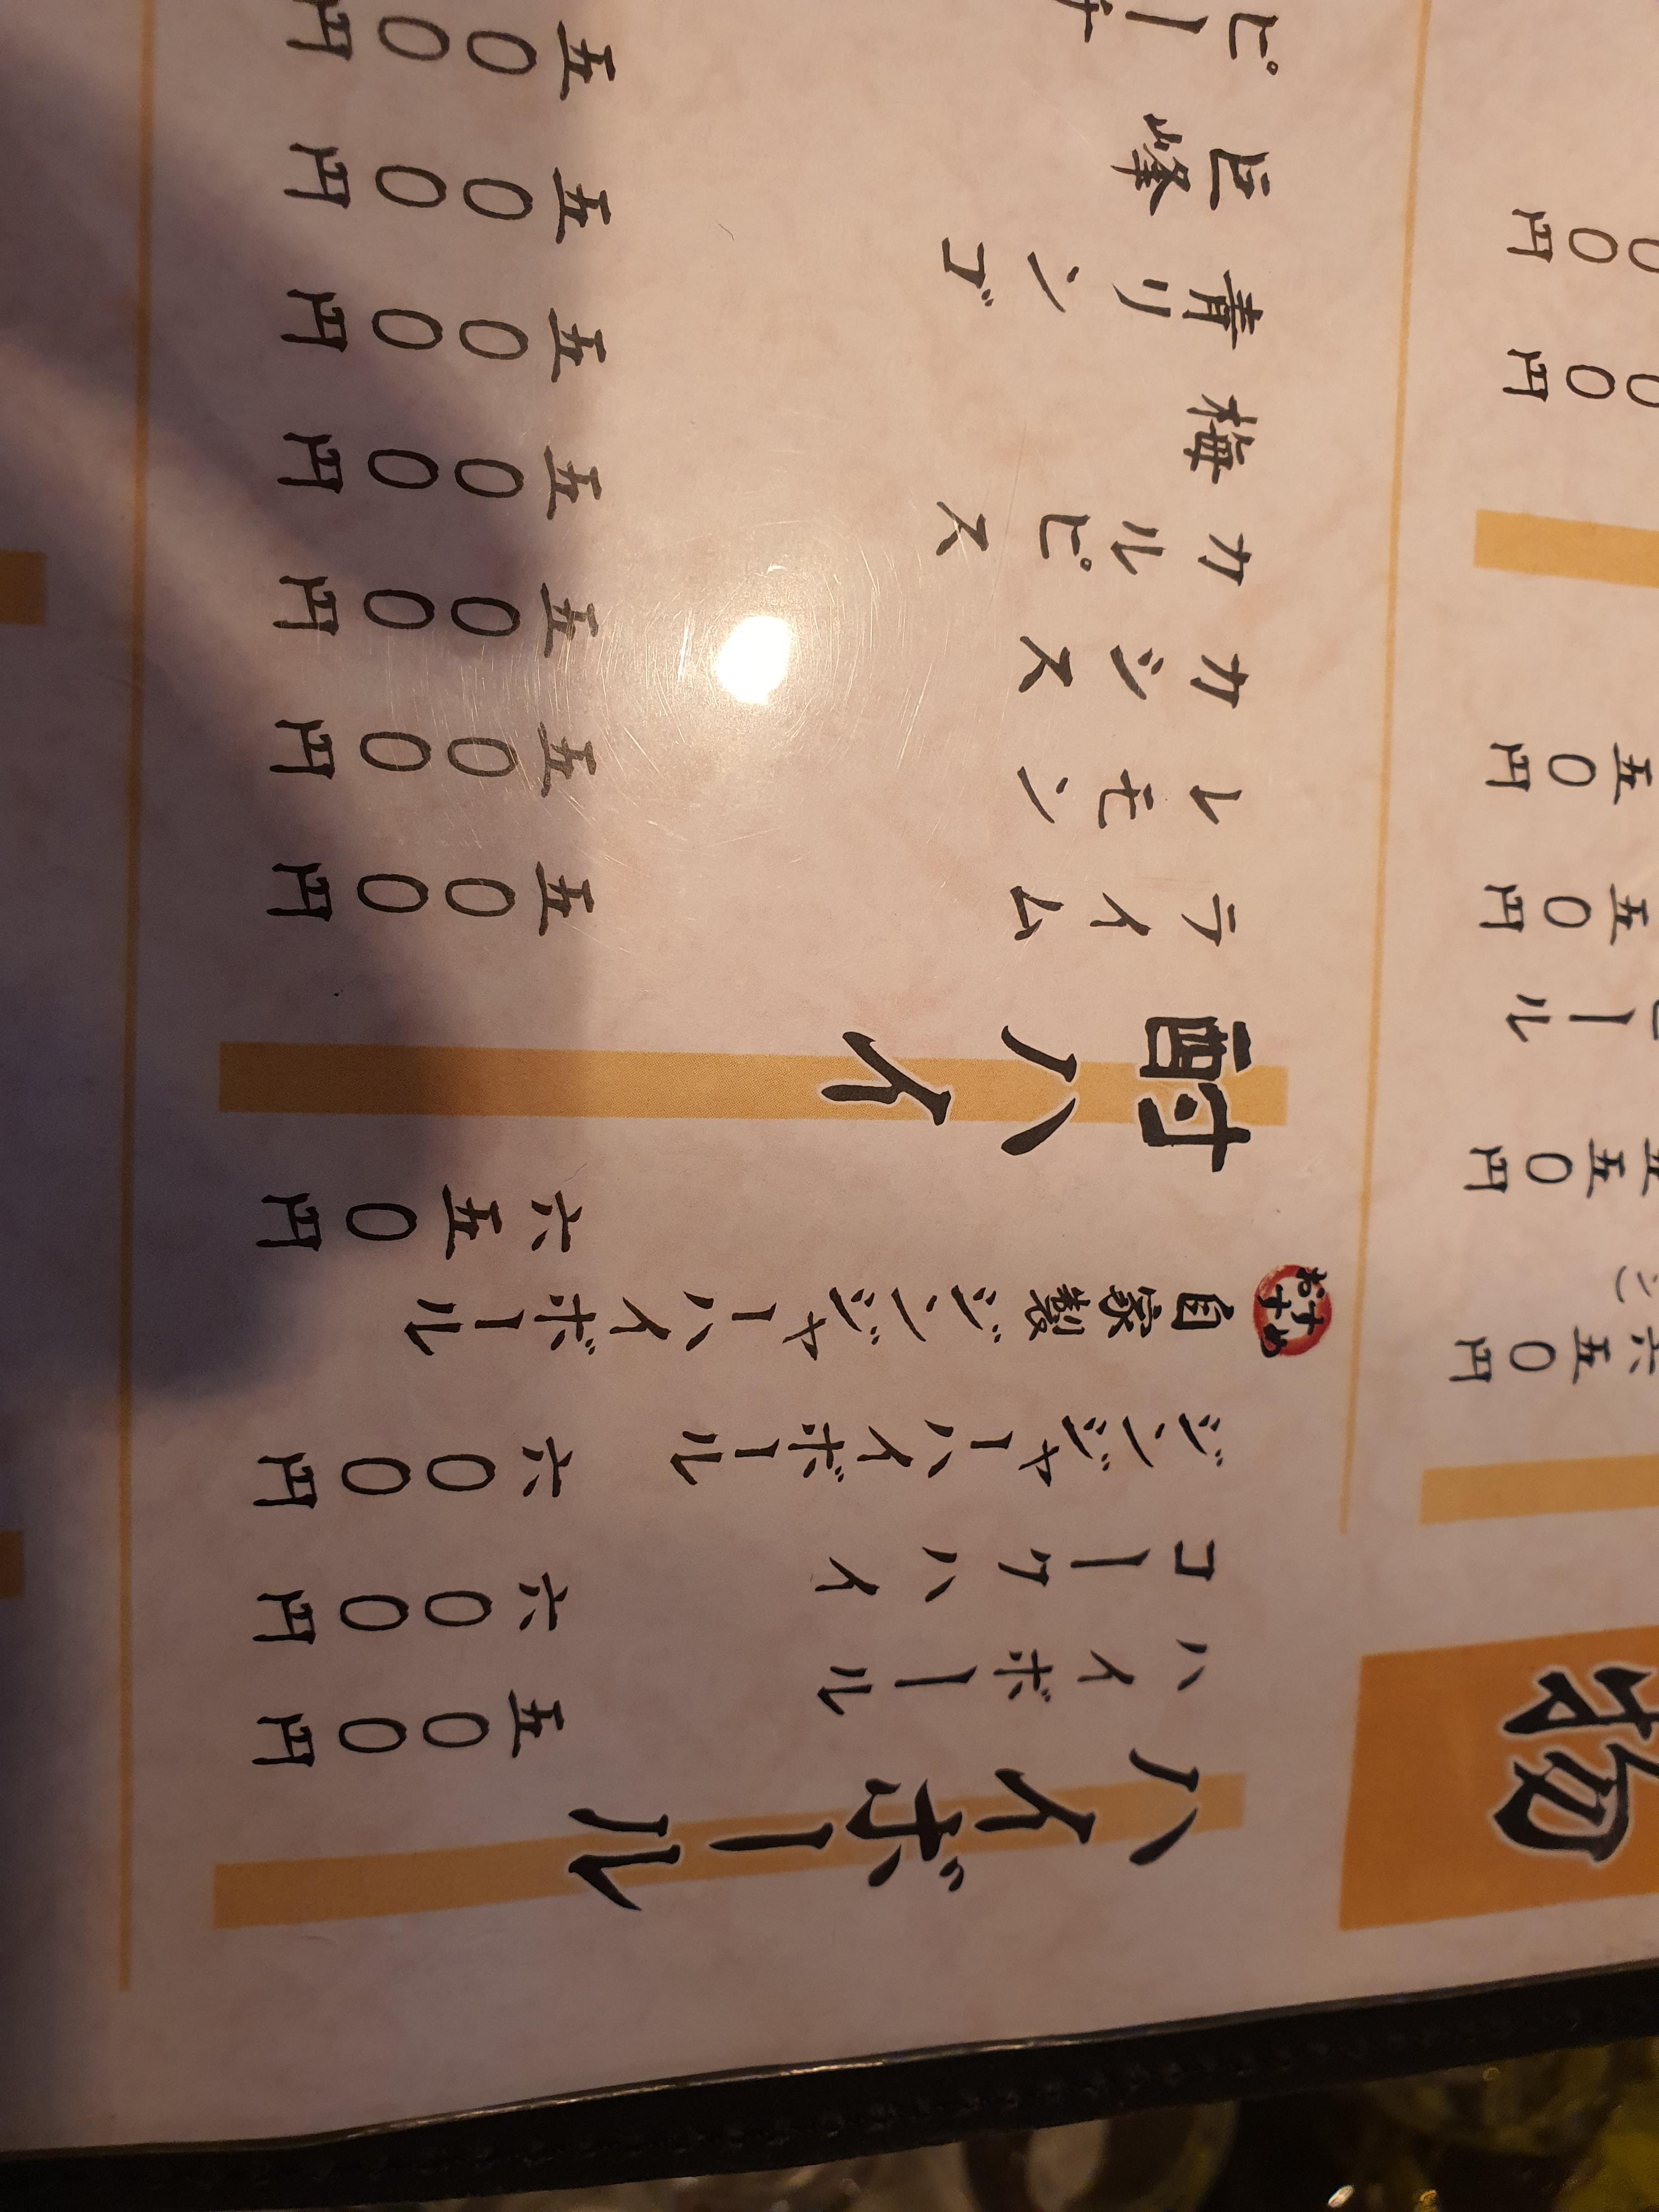 物
六五〇円
五五〇円
ール
五〇円
五〇円
〇〇円
〇〇円
ハイボール
ハイボール 五〇〇円
コークハイ 六〇〇円
ジンジャーハイボール 六〇〇円
おすすめ 自家製ジンジャーハイボール 六五〇円
酎ハイ
ライム 五〇〇円
レモン 五〇〇円
カシス 五〇〇円
カルピス 五〇〇円
梅 五〇〇円
青リンゴ 五〇〇円
巨峰 五〇〇円
ピーチ